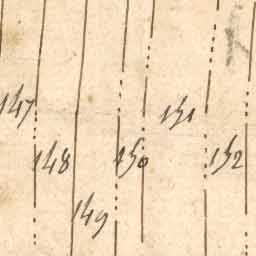 147
148
149
150
151
152